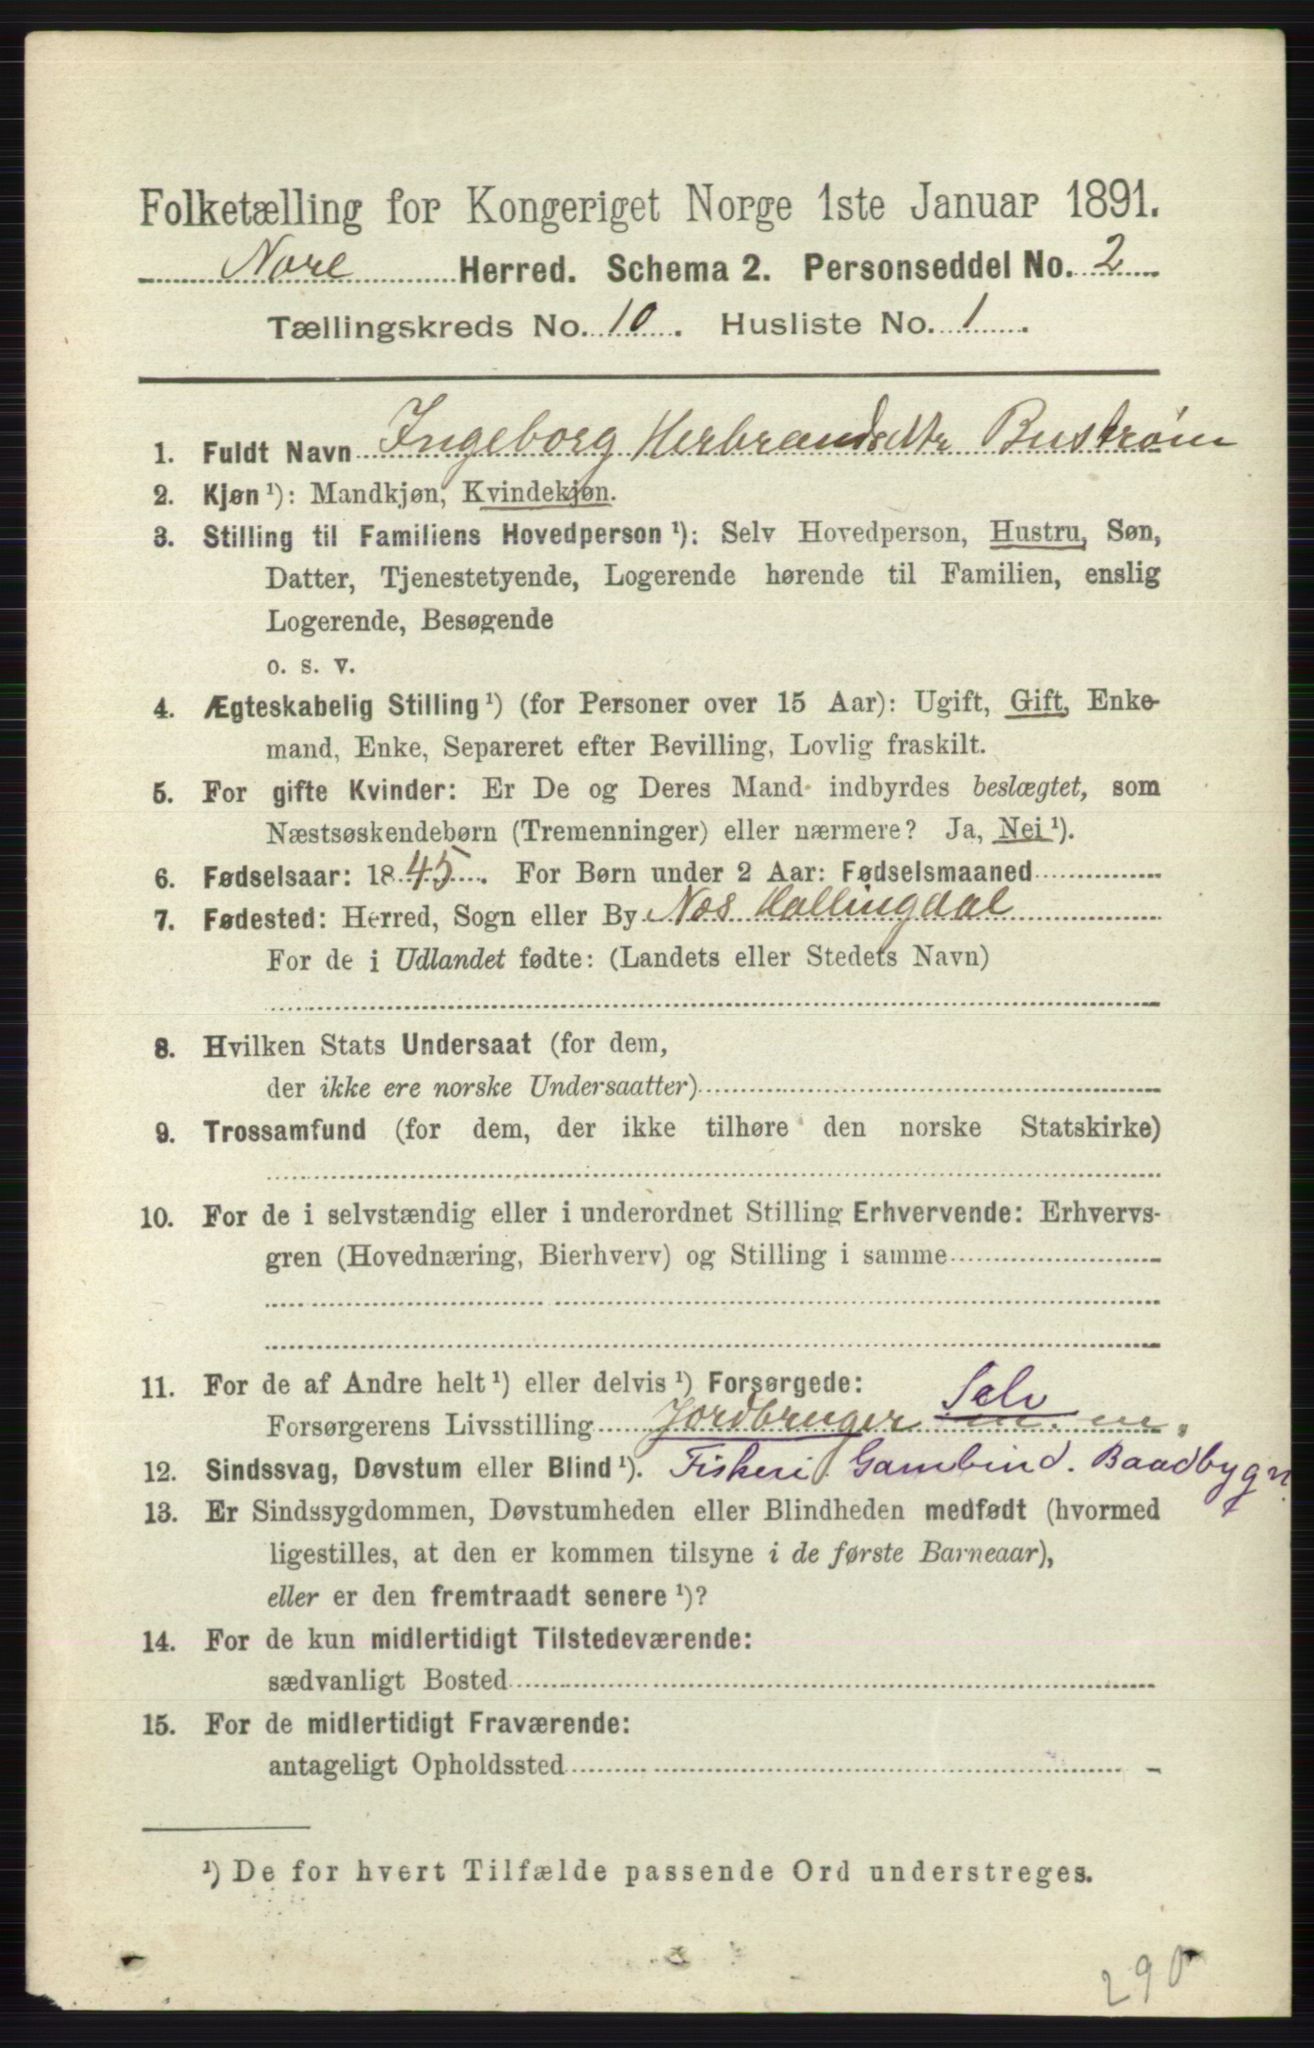 Folketælling for Kongeriget Norge 1ste Januar 1891.
Nore Herred. Schema 2. Personseddel No. 2
Tællingskreds No. 10. Husliste No. 1.
1. Fuldt Navn Ingeborg Herbrandsdtr Bustrøm
2. Kjøn ¹): Mandkjøn, Kvindekjøn.
3. Stilling til Familiens Hovedperson ¹): Selv Hovedperson, Hustru, Søn,
Datter, Tjenestetyende, Logerende hørende til Familien, enslig
Logerende, Besøgende
o. s. v.
4. Ægteskabelig Stilling ¹) (for Personer over 15 Aar): Ugift, Gift, Enke-
mand, Enke, Separeret efter Bevilling, Lovlig fraskilt.
5. For gifte Kvinder: Er De og Deres Mand indbyrdes beslægtet, som
Næstsøskendebørn (Tremenninger) eller nærmere? Ja, Nei ¹).
6. Fødselsaar: 1845. For Børn under 2 Aar: Fødselsmaaned
7. Fødested: Herred, Sogn eller By Nes Hallingdal
For de i Udlandet fødte: (Landets eller Stedets Navn)
8. Hvilken Stats Undersaat (for dem,
der ikke ere norske Undersaatter)
9. Trossamfund (for dem, der ikke tilhøre den norske Statskirke)
10. For de i selvstændig eller i underordnet Stilling Erhvervende: Erhvervs-
gren (Hovednæring, Bierhverv) og Stilling i samme
11. For de af Andre helt ¹) eller delvis ¹) Forsørgede:
Selv
Forsørgerens Livsstilling Jordbruger m. m.
12. Sindssvag, Døvstum eller Blind ¹). Fiskeri. Garnbind. Baadbygn.
13. Er Sindssygdommen, Døvstumheden eller Blindheden medfødt (hvormed
ligestilles, at den er kommen tilsyne i de første Barneaar),
eller er den fremtraadt senere ¹)?
14. For de kun midlertidigt Tilstedeværende:
sædvanligt Bosted
15. For de midlertidigt Fraværende:
antageligt Opholdssted
¹) De for hvert Tilfælde passende Ord understreges.
290